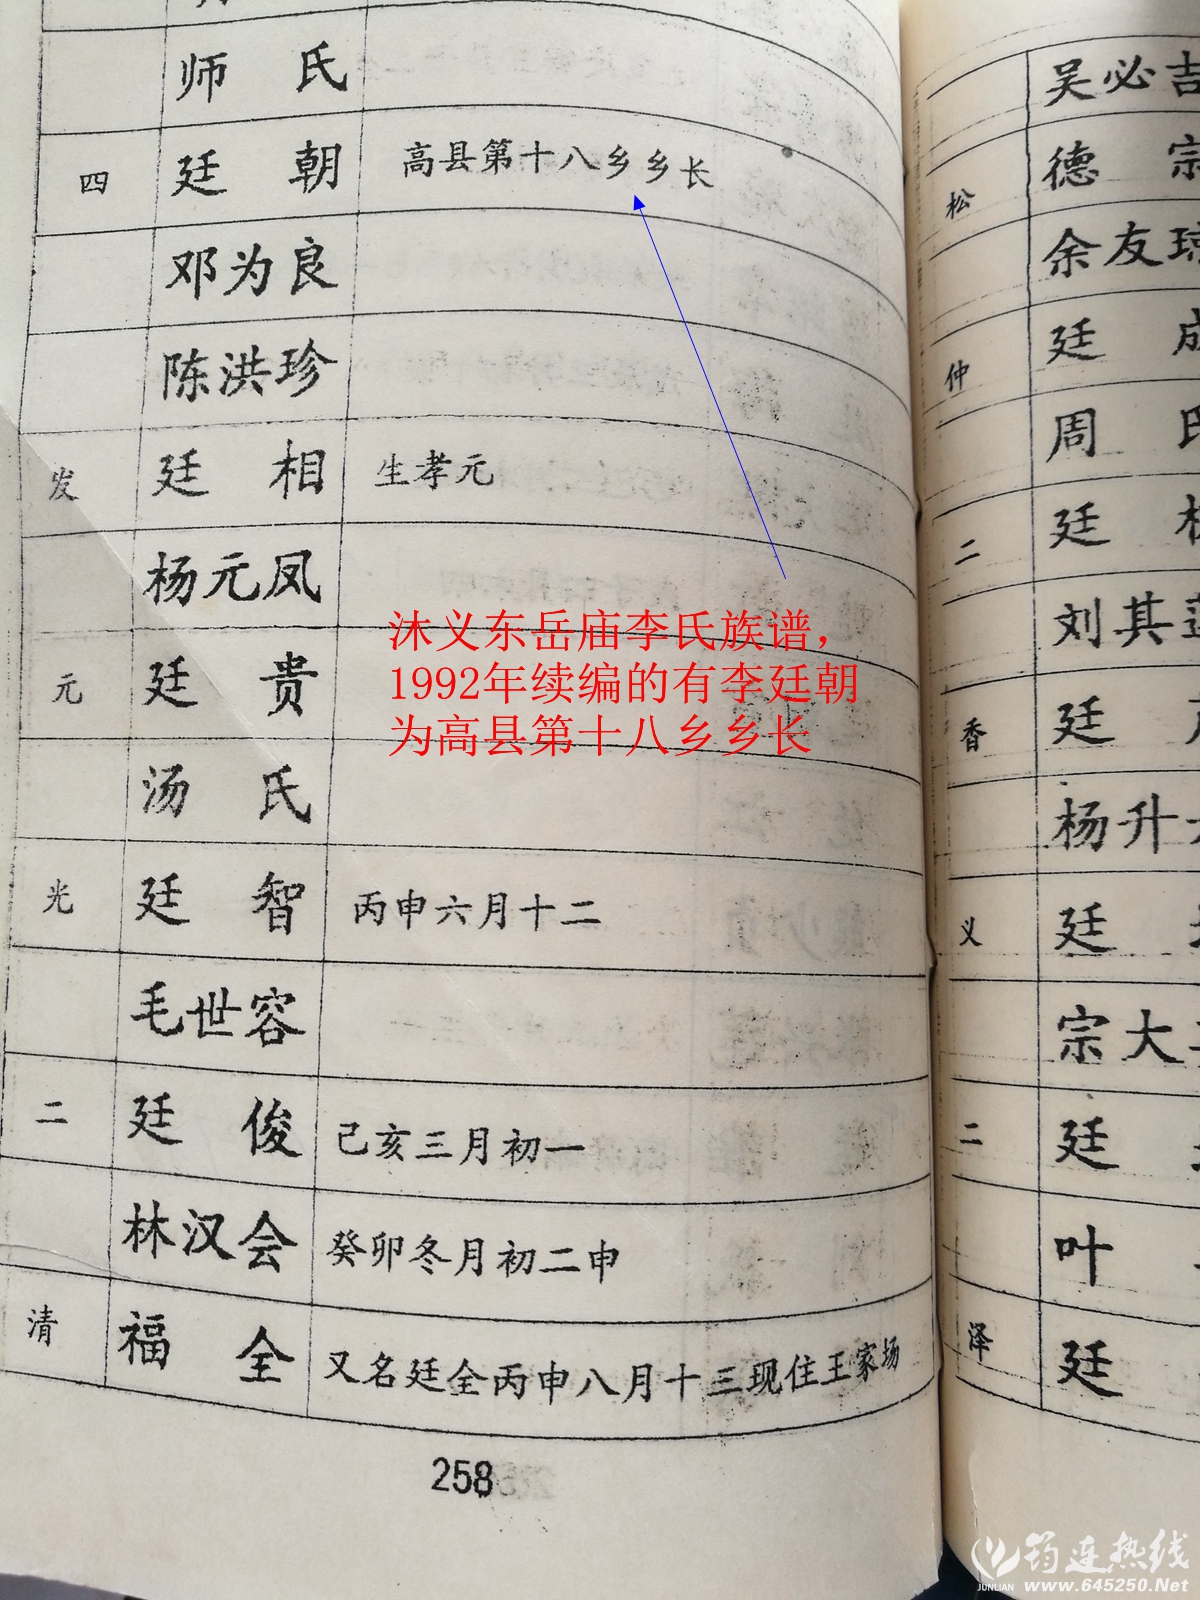 师 氏
四 廷 朝 高县第十八乡乡长
邓为良
陈洪珍
发 廷 相 生孝元
杨元凤
元 廷 贵
汤 氏
光 廷 智 丙申六月十二
毛世容
二 廷 俊 己亥三月初一
林汉会 癸卯冬月初二申
清 福 全 又名廷全丙申八月十三现住王家场
258
沐义东岳庙李氏族谱，
1992年续编的有李廷朝
为高县第十八乡乡长
吴必吉
松 德 宗
余友
仲 廷 成
周 氏
二 廷
刘其莲
香 廷
杨升
义 廷
宗大
二 廷
叶
泽 廷
筠连热线
JUNLIAN www.645250.Net